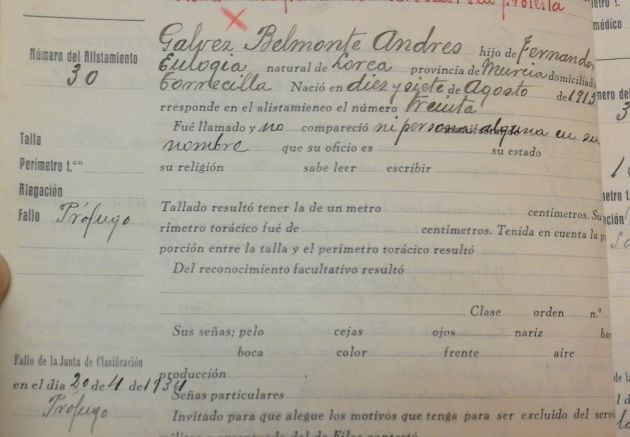 protesta
Galvez Belmonte Andres hijo de Fernando y
Eulogia natural de Lorca provincia de Murcia domiciliado
Torrecilla Nació en diez y siete de Agosto de 1913
rresponde en el alistamieneo el número treinta
Fué llamado y no compareció ni persona alguna en su
nombre que su oficio es su estado
su religión sabe leer escribir
Número del Alistamiento
30
Talla
Perímetro t.co
Alegación
Fallo Prófugo
Tallado resultó tener la de un metro centímetros. Su
rimetro torácico fué de centímetros. Tenida en cuenta la
porción entre la talla y el perímetro torácico resultó
Del reconocimiento facultativo resultó
Clase orden n.º
Sus señas; pelo cejas ojos nariz
boca color frente aire
producción
Señas particulares
Invitado para que alegue los motivos que tenga para ser excluído del servi
Fallo de la Junta de Clasificación
en el día 20 de 4 de 1934
Prófugo
médico